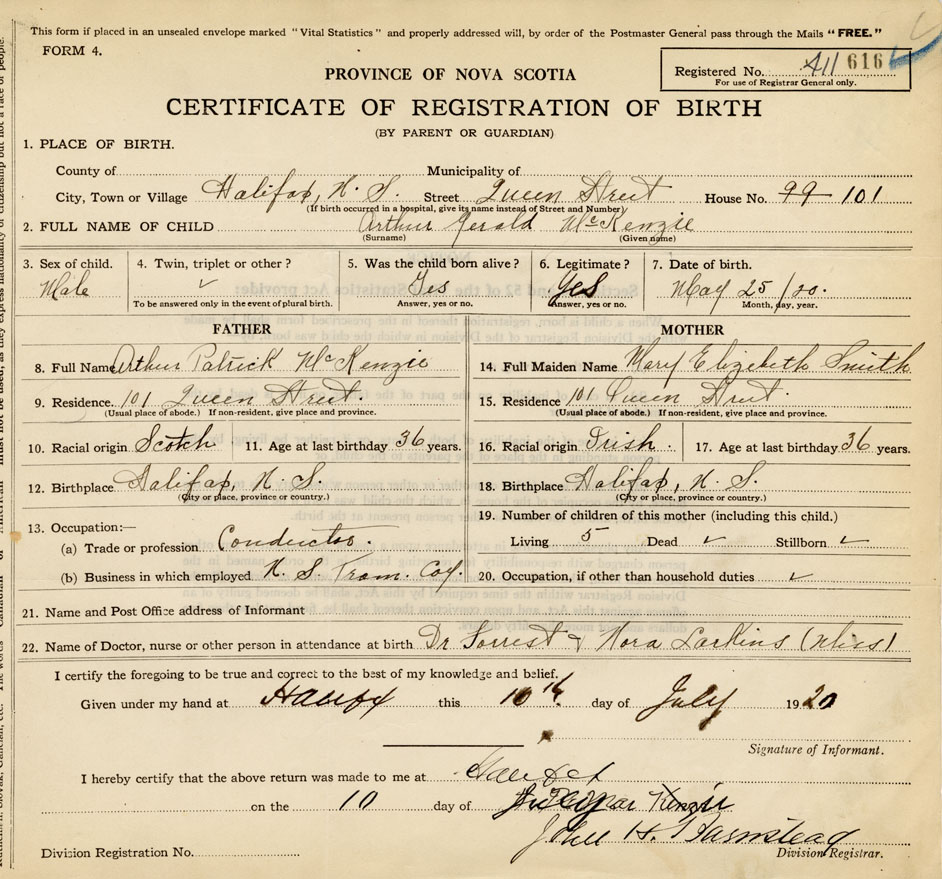 This form if placed in an unsealed envelope marked "Vital Statistics" and properly addressed will, by order of the Postmaster General pass through the Mails "FREE."
FORM 4.
Registered No. 411 616
For use of Registrar General only.
PROVINCE OF NOVA SCOTIA
CERTIFICATE OF REGISTRATION OF BIRTH
(BY PARENT OR GUARDIAN)
1. PLACE OF BIRTH.
County of Municipality of
City, Town or Village Halifax, N. S. Street Queen Street House No. 99 101
(If birth occurred in a hospital, give its name instead of Street and Number)
2. FULL NAME OF CHILD Arthur Gerald McKenzie
(Surname) (Given name)
3. Sex of child. 4. Twin, triplet or other? 5. Was the child born alive? 6. Legitimate? 7. Date of birth.
Male ✓ Yes Yes May 25/20.
To be answered only in the event of plural birth. Answer, yes or no. Answer, yes or no. Month, day, year.
FATHER MOTHER
8. Full Name Arthur Patrick McKenzie 14. Full Maiden Name Mary Elizabeth Smith
9. Residence. 101 Queen Street. 15. Residence. 101 Queen Street.
(Usual place of abode.) If non-resident, give place and province. (Usual place of abode.) If non-resident, give place and province.
10. Racial origin Scotch 11. Age at last birthday 36 years. 16. Racial origin Irish. 17. Age at last birthday 36 years.
12. Birthplace Halifax, N. S. 18. Birthplace Halifax, N. S.
(City or place, province or country.) (City or place, province or country.)
13. Occupation:— 19. Number of children of this mother (including this child.)
(a) Trade or profession Conductor. Living 5 Dead ✓ Stillborn ✓
(b) Business in which employed N. S. Tram. Coy. 20. Occupation, if other than household duties ✓
21. Name and Post Office address of Informant
22. Name of Doctor, nurse or other person in attendance at birth Dr Forrest & Nora Larkins (Miss)
I certify the foregoing to be true and correct to the best of my knowledge and belief.
Given under my hand at Halifax this 10th day of July 1920
Signature of Informant.
I hereby certify that the above return was made to me at Halifax
on the 10 day of
John H. Barnstead
Division Registration No. Division Registrar.